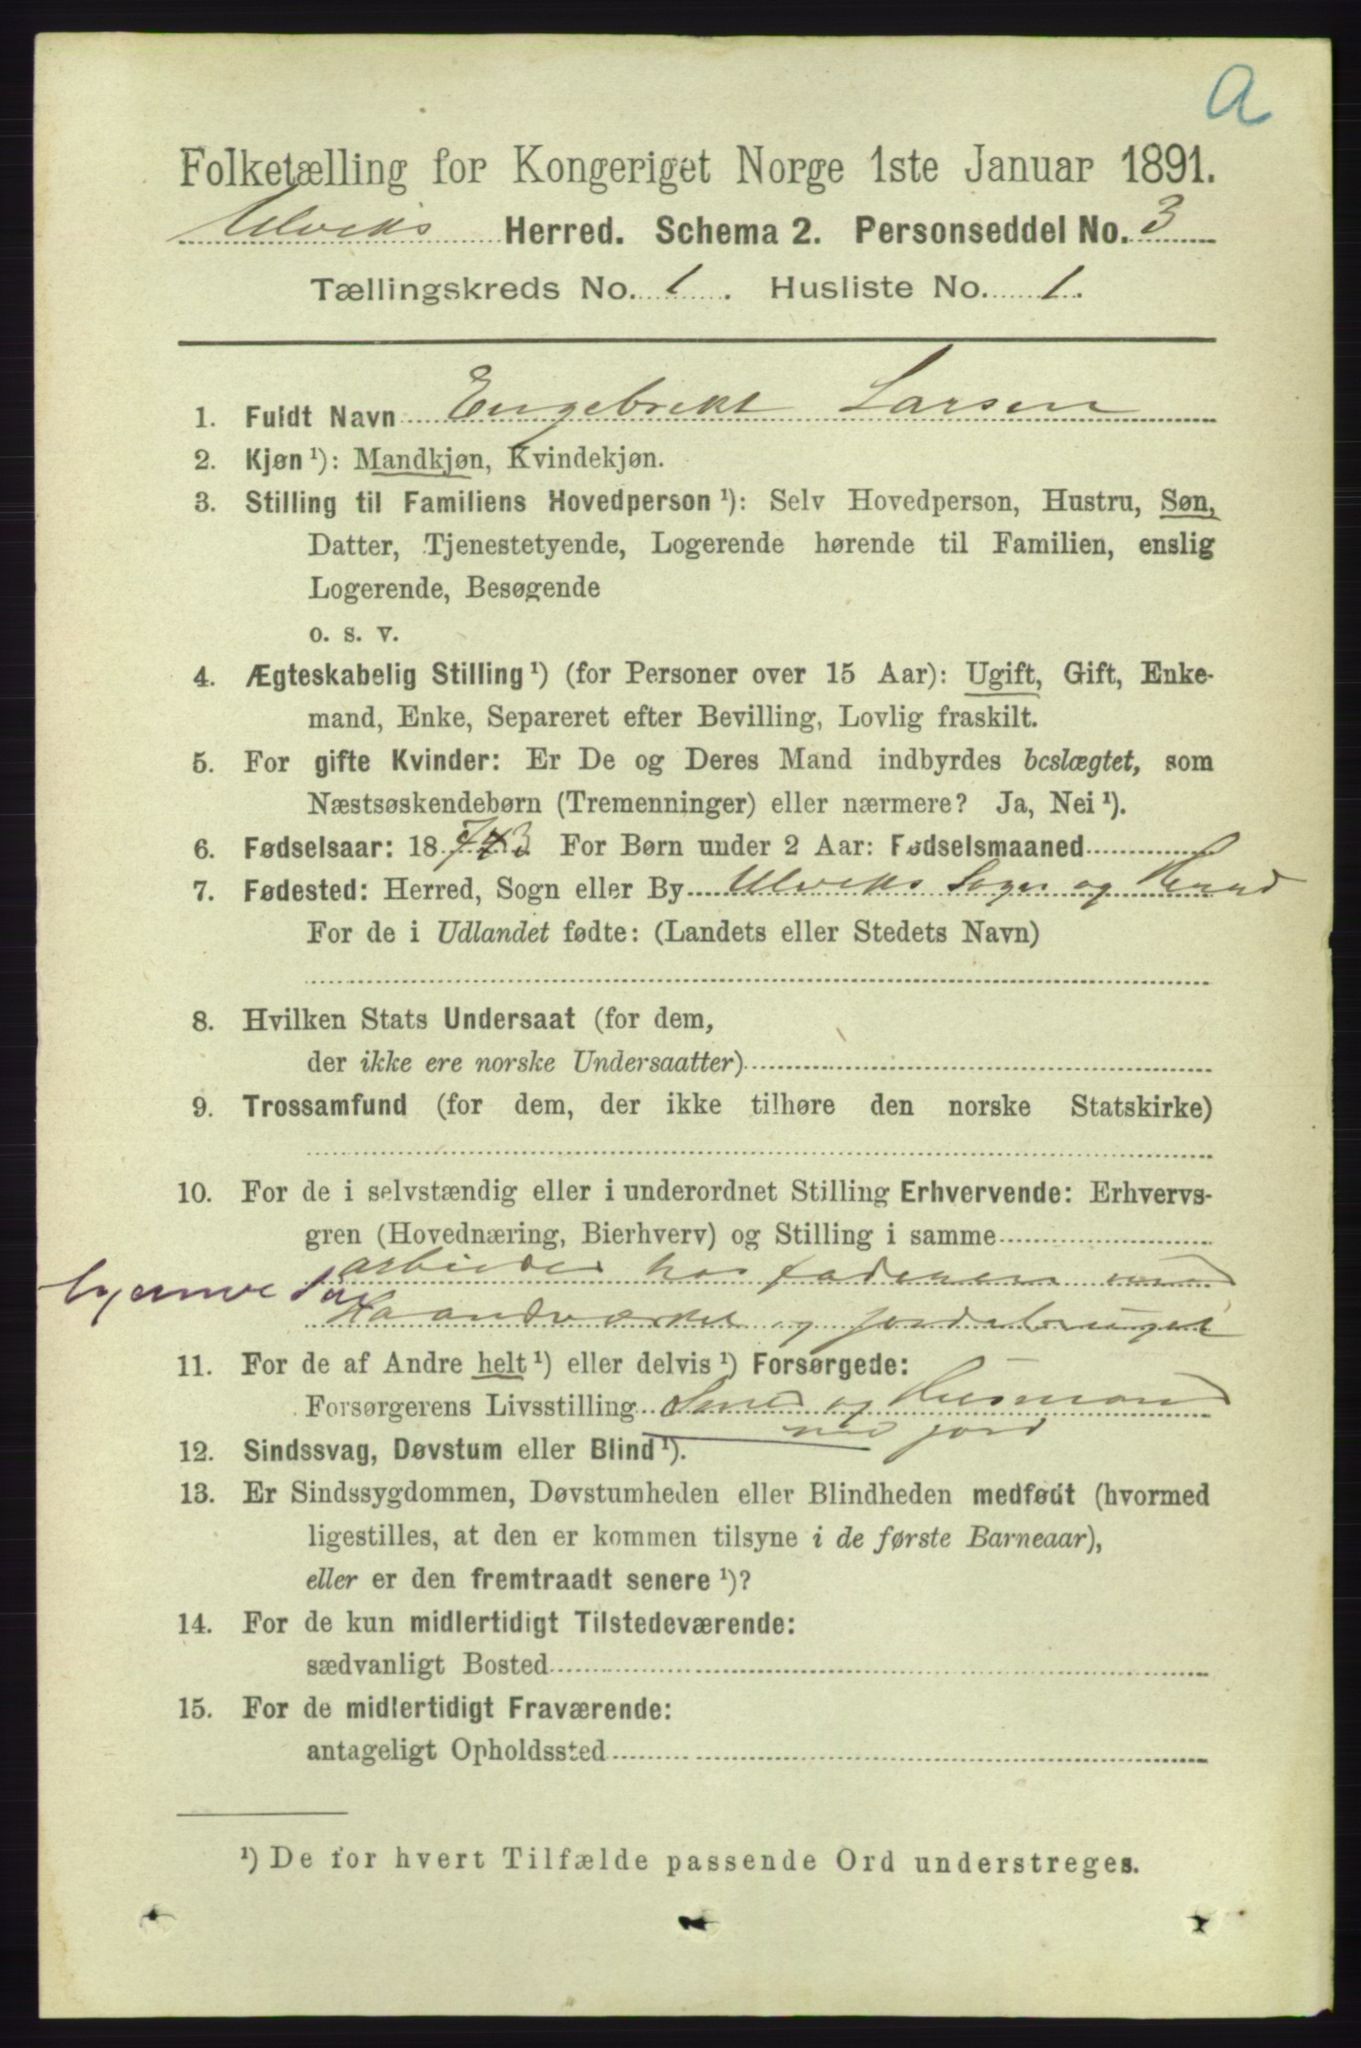 a
Folketælling for Kongeriget Norge 1ste Januar 1891.
Ulviks Herred. Schema 2. Personseddel No. 3
Tællingskreds No. 1. Husliste No. 1.
1. Fuldt Navn Engebrekt Larsen
2. Kjøn ¹): Mandkjøn, Kvindekjøn.
3. Stilling til Familiens Hovedperson ¹): Selv Hovedperson, Hustru, Søn,
Datter, Tjenestetyende, Logerende hørende til Familien, enslig
Logerende, Besøgende
o. s. v.
4. Ægteskabelig Stilling ¹) (for Personer over 15 Aar): Ugift, Gift, Enke-
mand, Enke, Separeret efter Bevilling, Lovlig fraskilt.
5. For gifte Kvinder: Er De og Deres Mand indbyrdes beslægtet, som
Næstsøskendebørn (Tremenninger) eller nærmere? Ja, Nei ¹).
6. Fødselsaar: 18 For Børn under 2 Aar: Fødselsmaaned
7. Fødested: Herred, Sogn eller By Ulviks Sogn og Herred
For de i Udlandet fødte: (Landets eller Stedets Navn)
8. Hvilken Stats Undersaat (for dem,
der ikke ere norske Undersaatter)
9. Trossamfund (for dem, der ikke tilhøre den norske Statskirke)
10. For de i selvstændig eller i underordnet Stilling Erhvervende: Erhvervs-
gren (Hovednæring, Bierhverv) og Stilling i samme
arbeider hos faderen med
hjemme Søn Haandværket og jordebruget
11. For de af Andre helt ¹) eller delvis ¹) Forsørgede:
Forsørgerens Livsstilling Smed og Husmand
med jord
12. Sindssvag, Døvstum eller Blind ¹).
13. Er Sindssygdommen, Døvstumheden eller Blindheden medfødt (hvormed
ligestilles, at den er kommen tilsyne i de første Barneaar),
eller er den fremtraadt senere ¹)?
14. For de kun midlertidigt Tilstedeværende:
sædvanligt Bosted
15. For de midlertidigt Fraværende:
antageligt Opholdssted
¹) De for hvert Tilfælde passende Ord understreges.